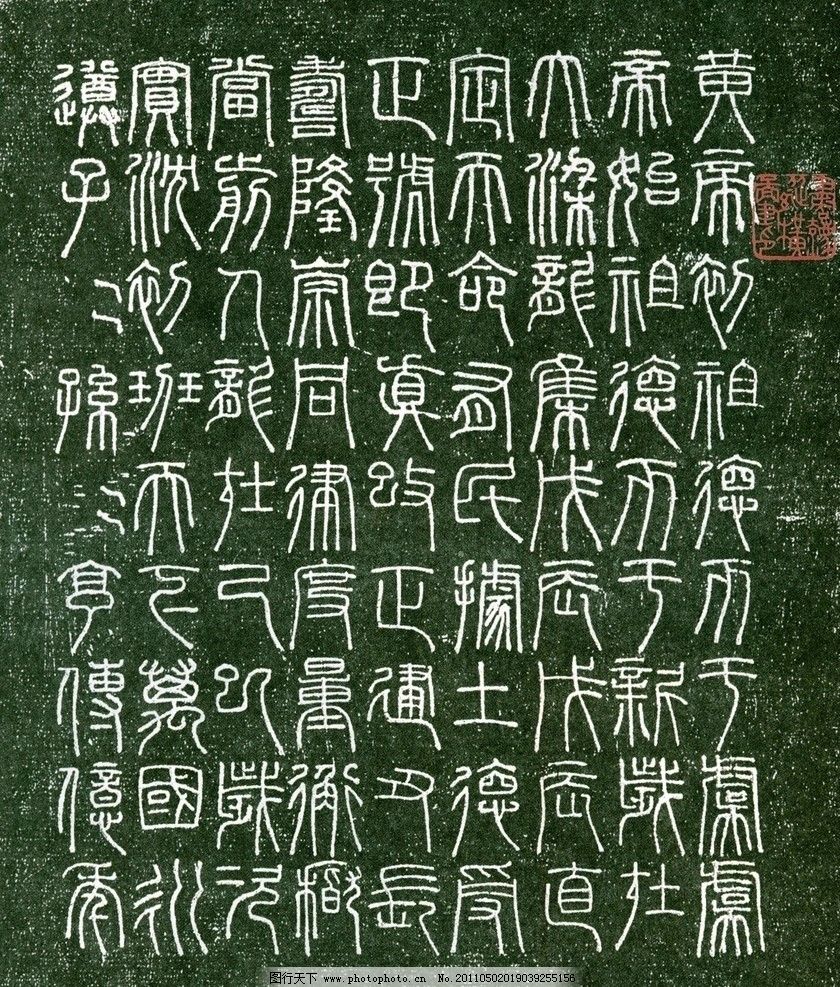 黃帝初祖德帀于虞虞
帝始祖德帀于新歲在
大梁龍集戊辰戊辰直
定天命有民據土德受
正號即真改正建丑長
壽隆崇同律度量衡稽
當前人龍在己巳歲次
實沈初班天下萬國永
遵子〻孫〻亨傳億年
图行天下 www.photophoto.cn No.20110502019039255156